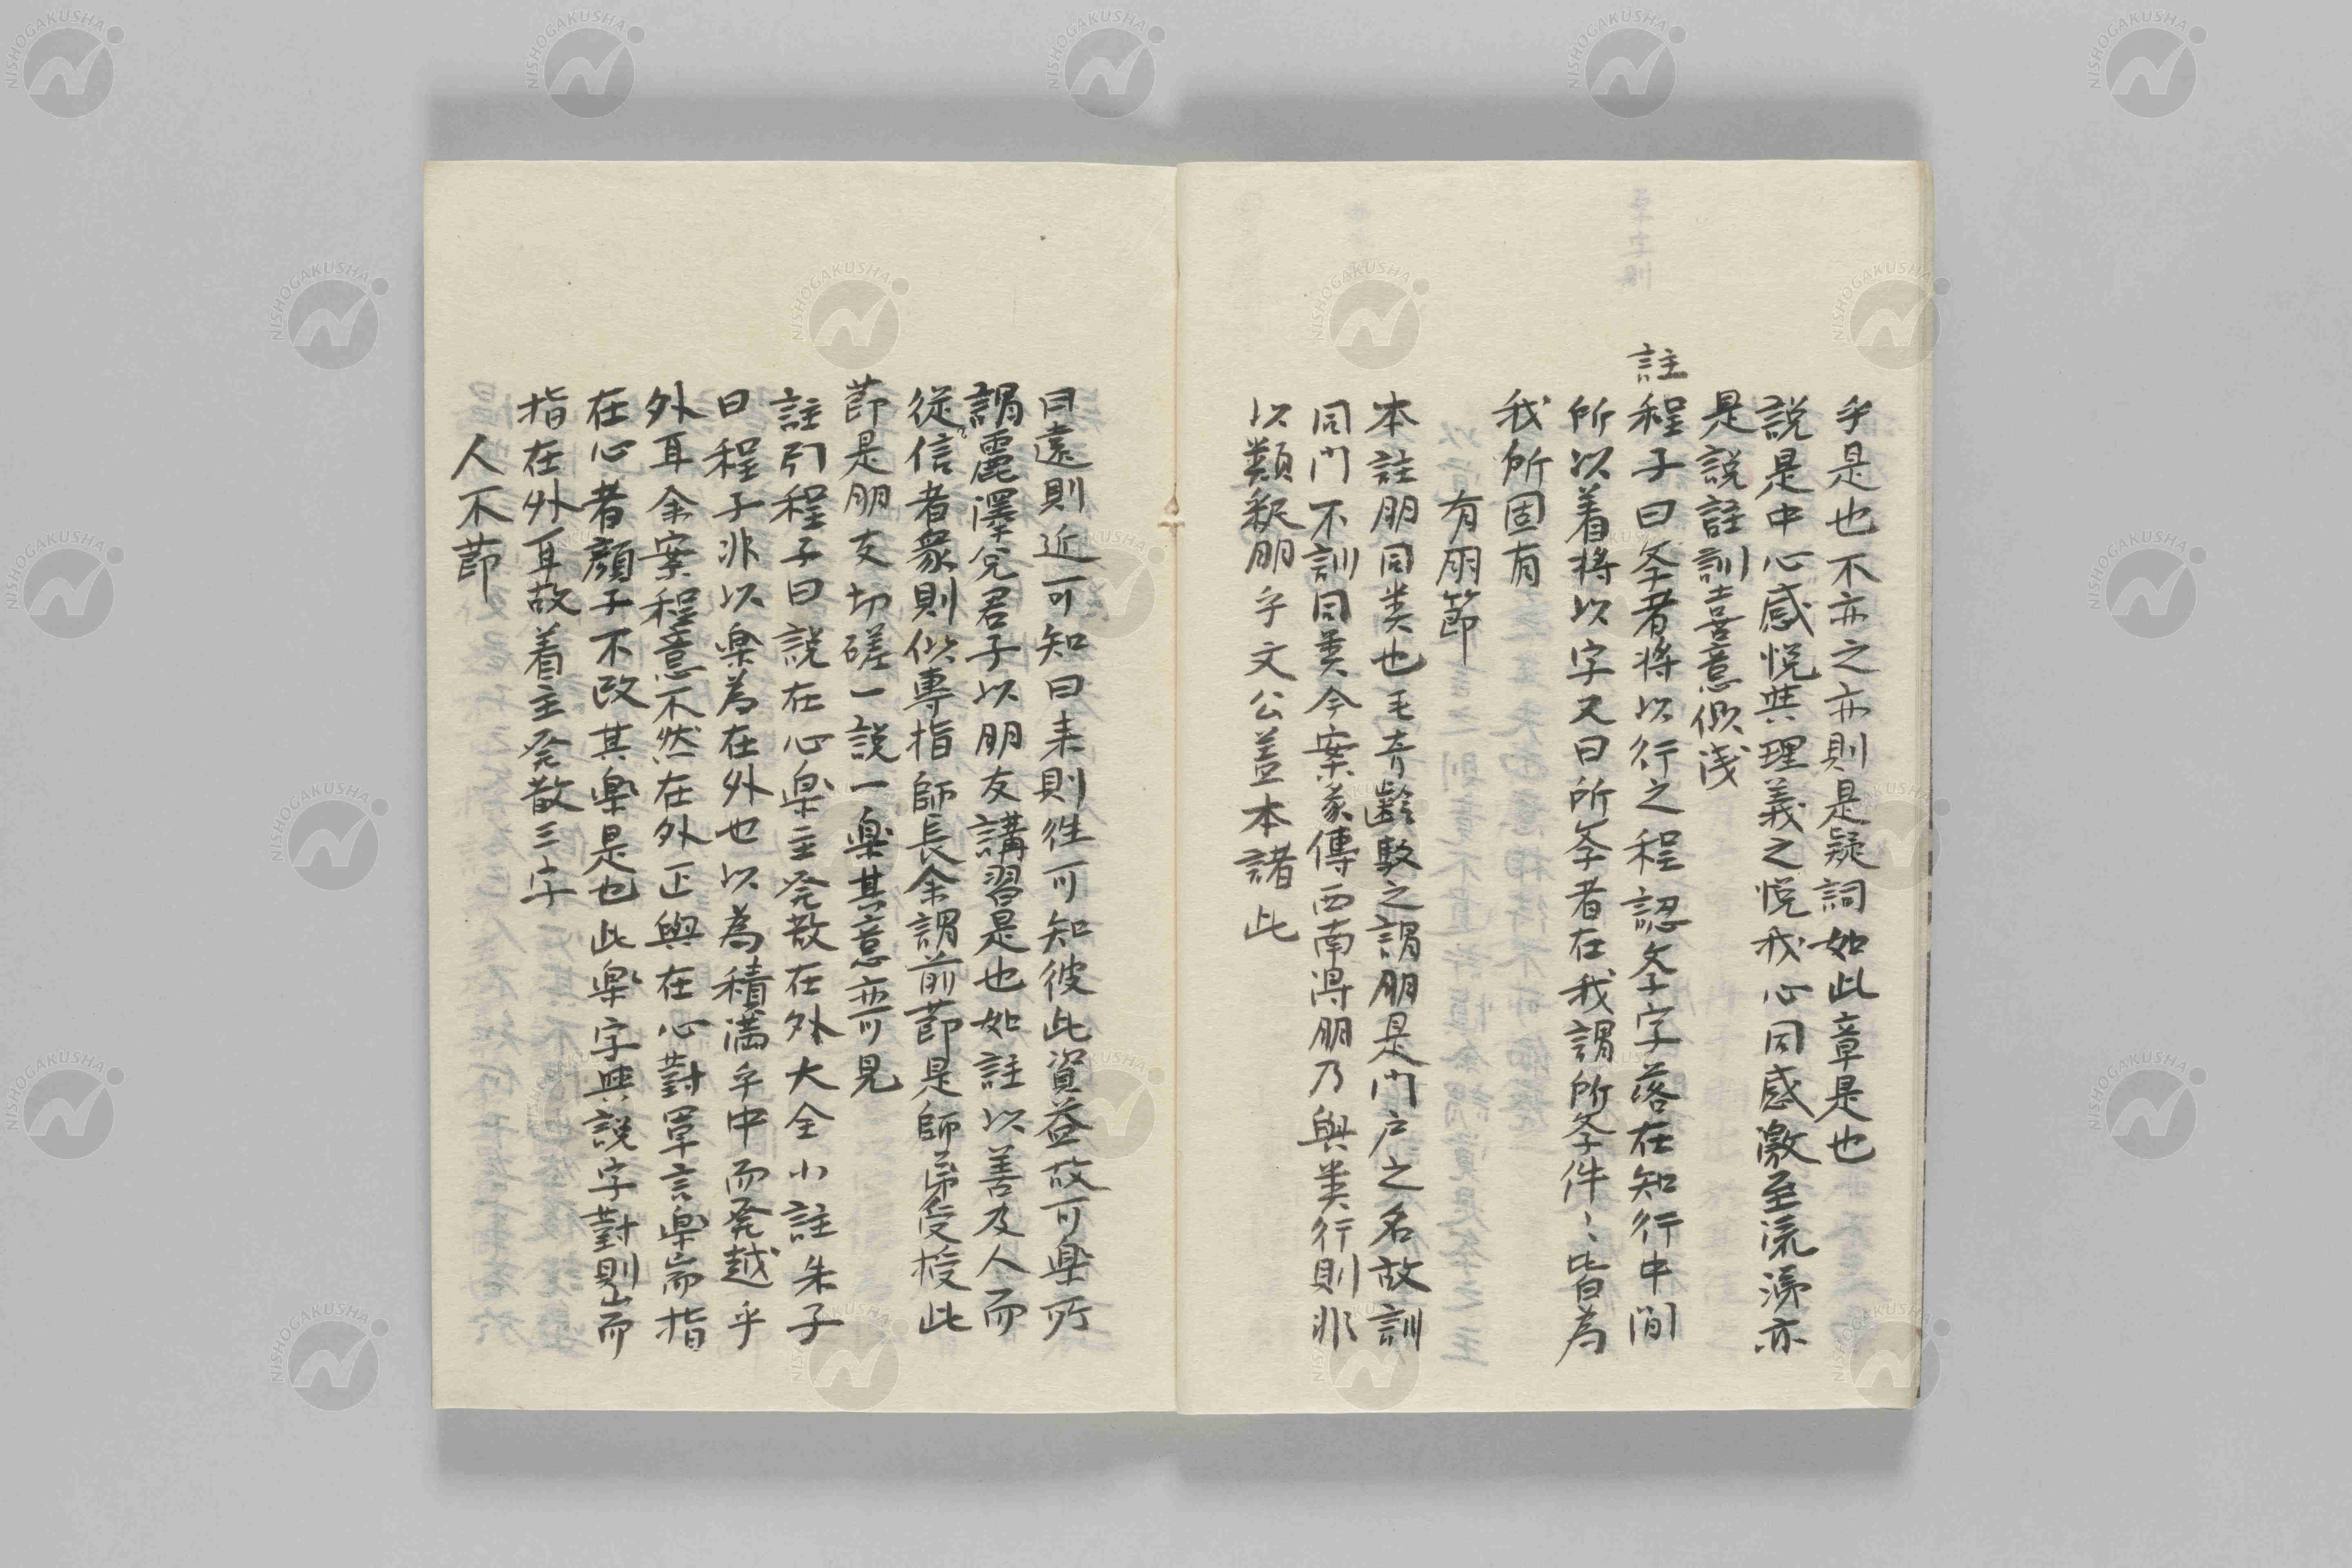 乎是也不亦之亦則是疑詞如此章是也
説是中心感悦與理義之悦我心同感激至流涕亦
是説註訓喜意似浅
註程子曰斈者将以行之程認斈字落在知行中間
所以着将以字又曰所斈者在我謂所斈件〻皆為
我所固有
有朋節
本註朋同类也毛奇齡駁之謂朋是門戸之名故訓
同門不訓同类今案彖傳西南得朋乃與类行則非
以類釈朋乎文公蓋本諸此
曰遠則近可知曰来則徃可知彼此資益故可楽所
謂麗澤兌君子以朋友講習是也如註以善及人而
従信者衆則似専指師長余謂前節是師弟受授此
節是朋友切磋一説一楽其意亦可見
註引程子曰説在心楽主発散在外大全小註朱子
曰程子非以楽為在外也以為積満乎中而発越乎
外耳余案程意不然在外正與在心對單言楽耑指
在心者顔子不改其楽是也此楽字與説字對則耑
指在外耳故着主発散三字
人不節
NISHOGAKUSHA